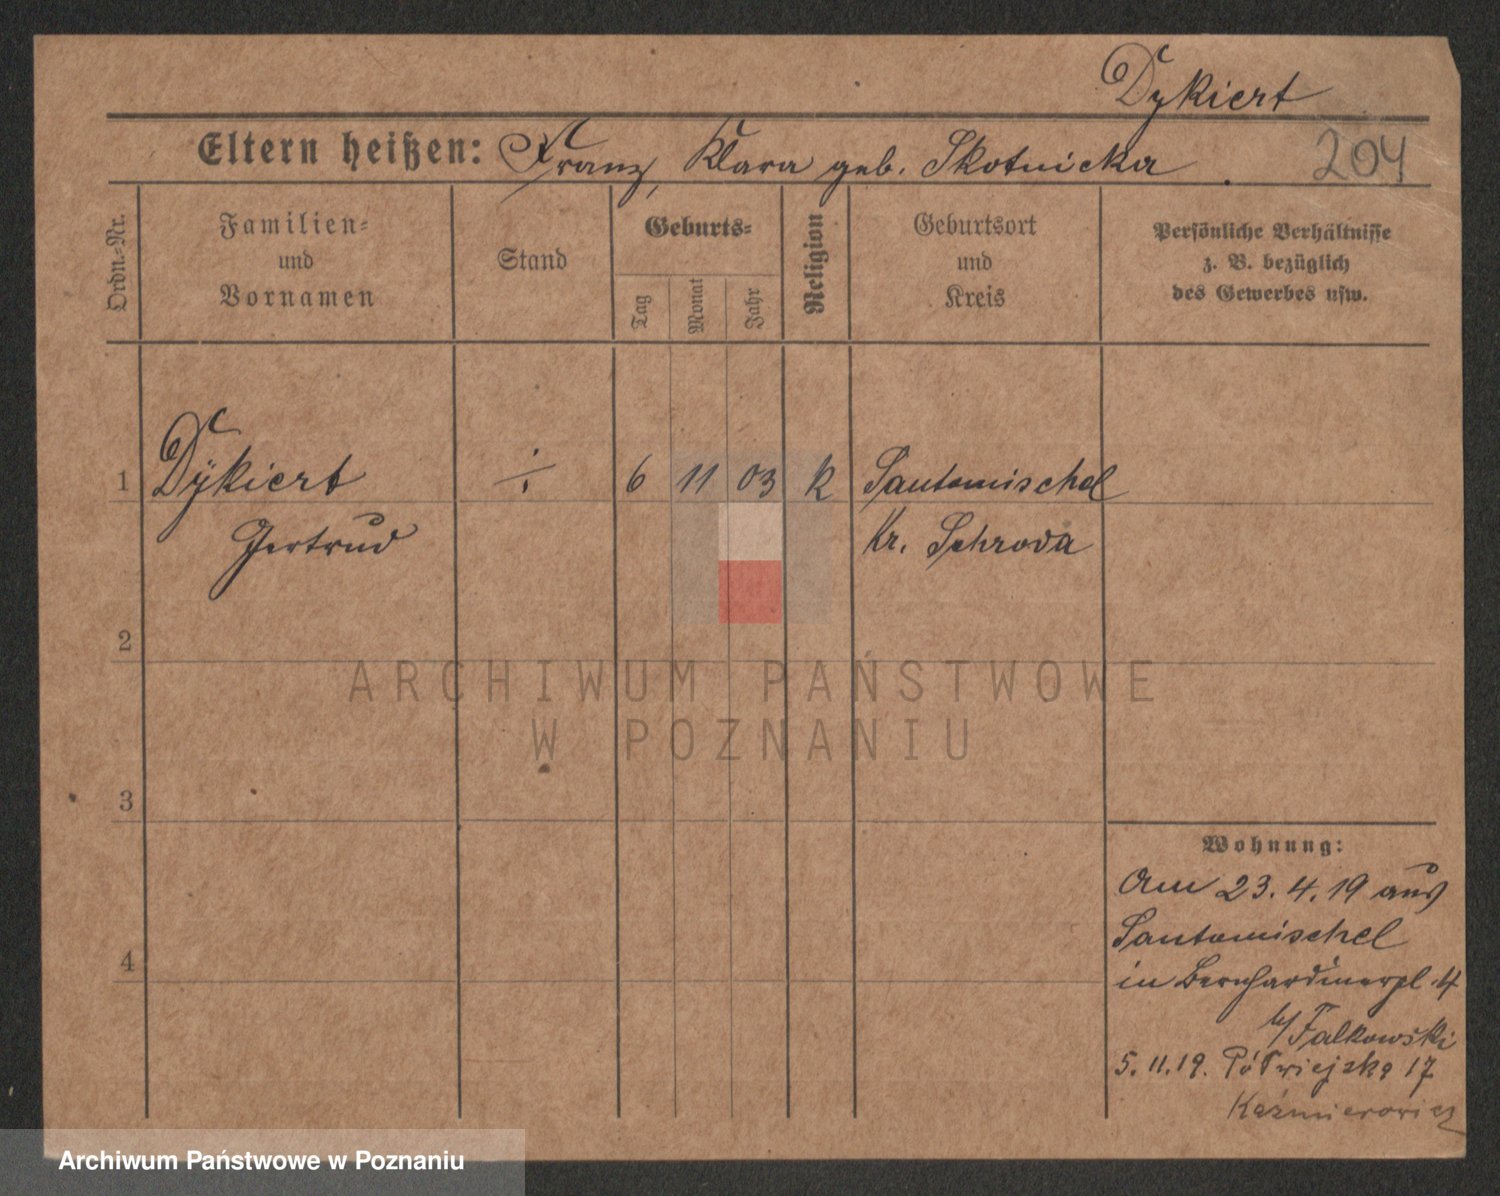 Dykiert
Eltern heißen: Franz, Klara geb. Skotnicka.
204
Ordn.-Nr.
Familien-
und
Vornamen
Stand
Geburts-
Tag
Monat
Jahr
Religion
Geburtsort
und
Kreis
Persönliche Verhältnisse
z. B. bezüglich
des Gewerbes usw.
1 Dÿkiert ÷ 6 11 03 k Santomischel
Gertrud Kr. Schroda
2
3
4
Wohnung:
Am 23.4.19 aus
Santomischel
in Bernhardinerpl. 4
b/Falkowski
5.11.19. Półwiejska 17
Kaźmierowicz
ARCHIWUM PAŃSTWOWE
W POZNANIU
Archiwum Państwowe w Poznaniu